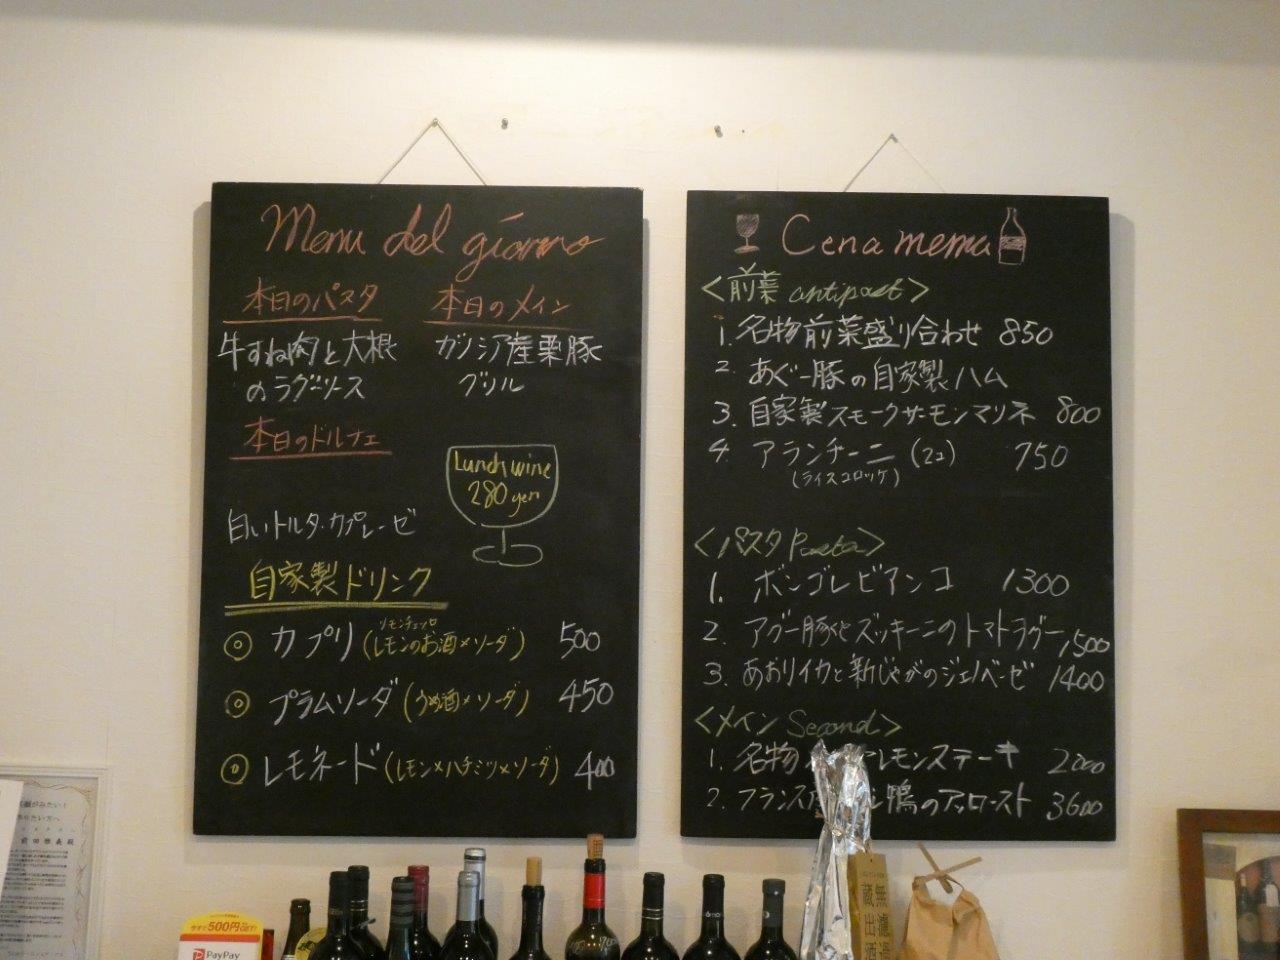 Menu del giorno
本日のパスタ
牛すね肉と大根
のラグーソース
本日のメイン
ガリシア産栗豚
グリル
本日のドルチェ
Lunch wine
280 yen
白いトルタ・カプレーゼ
自家製ドリンク
◎ カプリ (レモンのお酒×ソーダ) 500
リモンチェッロ
◎ プラムソーダ (うめ酒×ソーダ) 450
◎ レモネード (レモン×ハチミツ×ソーダ) 400
Cena menu
<前菜 antipast>
1. 名物前菜盛り合わせ 850
2. あぐー豚の自家製ハム
3. 自家製スモークサーモンマリネ 800
4. アランチーニ (2コ) 750
(ライスコロッケ)
<パスタ Pasta>
1. ボンゴレビアンコ 1300
2. アグー豚とズッキーニのトマトラグー 1500
3. あおりイカと新じゃがのジェノベーゼ 1400
<メイン Second>
1. 名物 レモンステーキ 2200
2. フランス産 鴨のアッロースト 3600
今すぐ500円
PayPay
無濾過
蔵出酒
前田雅義殿